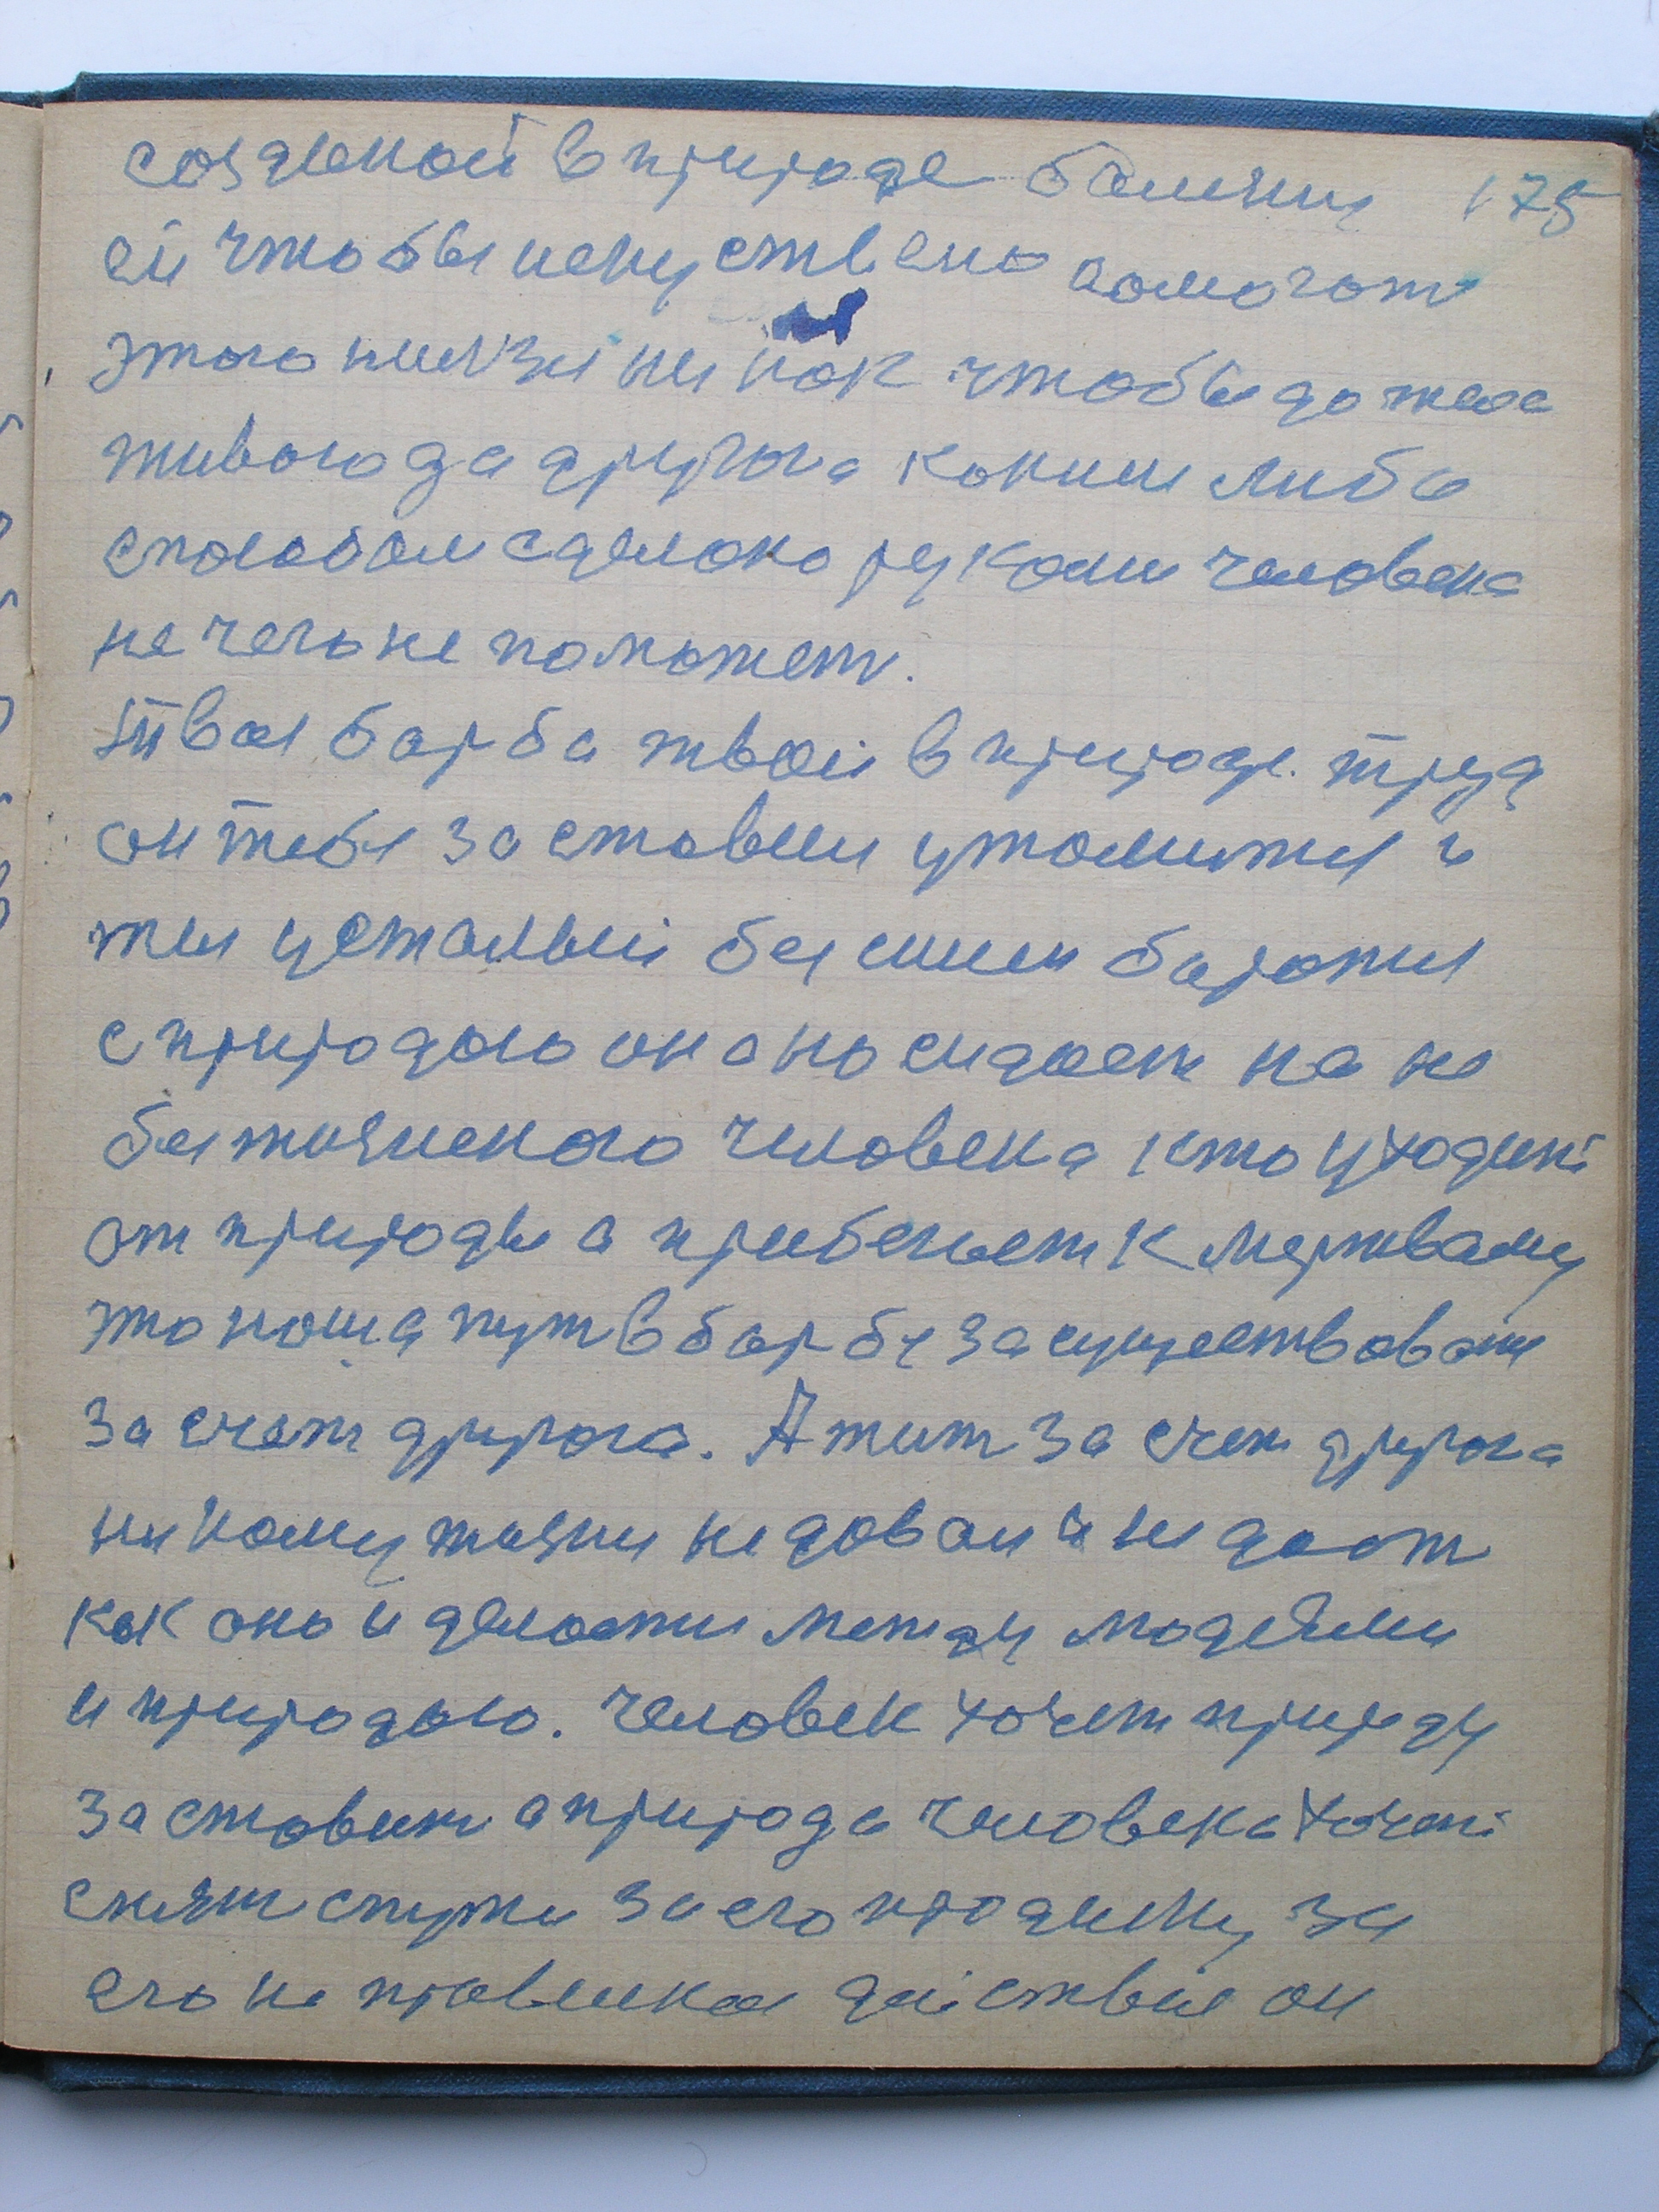 созданой в природе болезни 175
ей чтобы искуствено помогат
этого нильзя ни как чтобы до тела
живого да другога коким либо
способом сделоно рукоми человека
не чего не поможет.
Твоя барба твой в природе труд
он тебя заставил утомится и
ты усталый без силы баротся
с природою она насидает на не
безжизненого человека кто уходит
от природы а прибегает к мертваму
это наша пут в барбе за существование
за счет другога. А жит за счет другога
ни кому жизни не довал и не даст
как оно и делоется между людями
и природою. Человек хочет природу
заставит а природа человека хочет
снят с пути за его продику за
его не правилная действие он